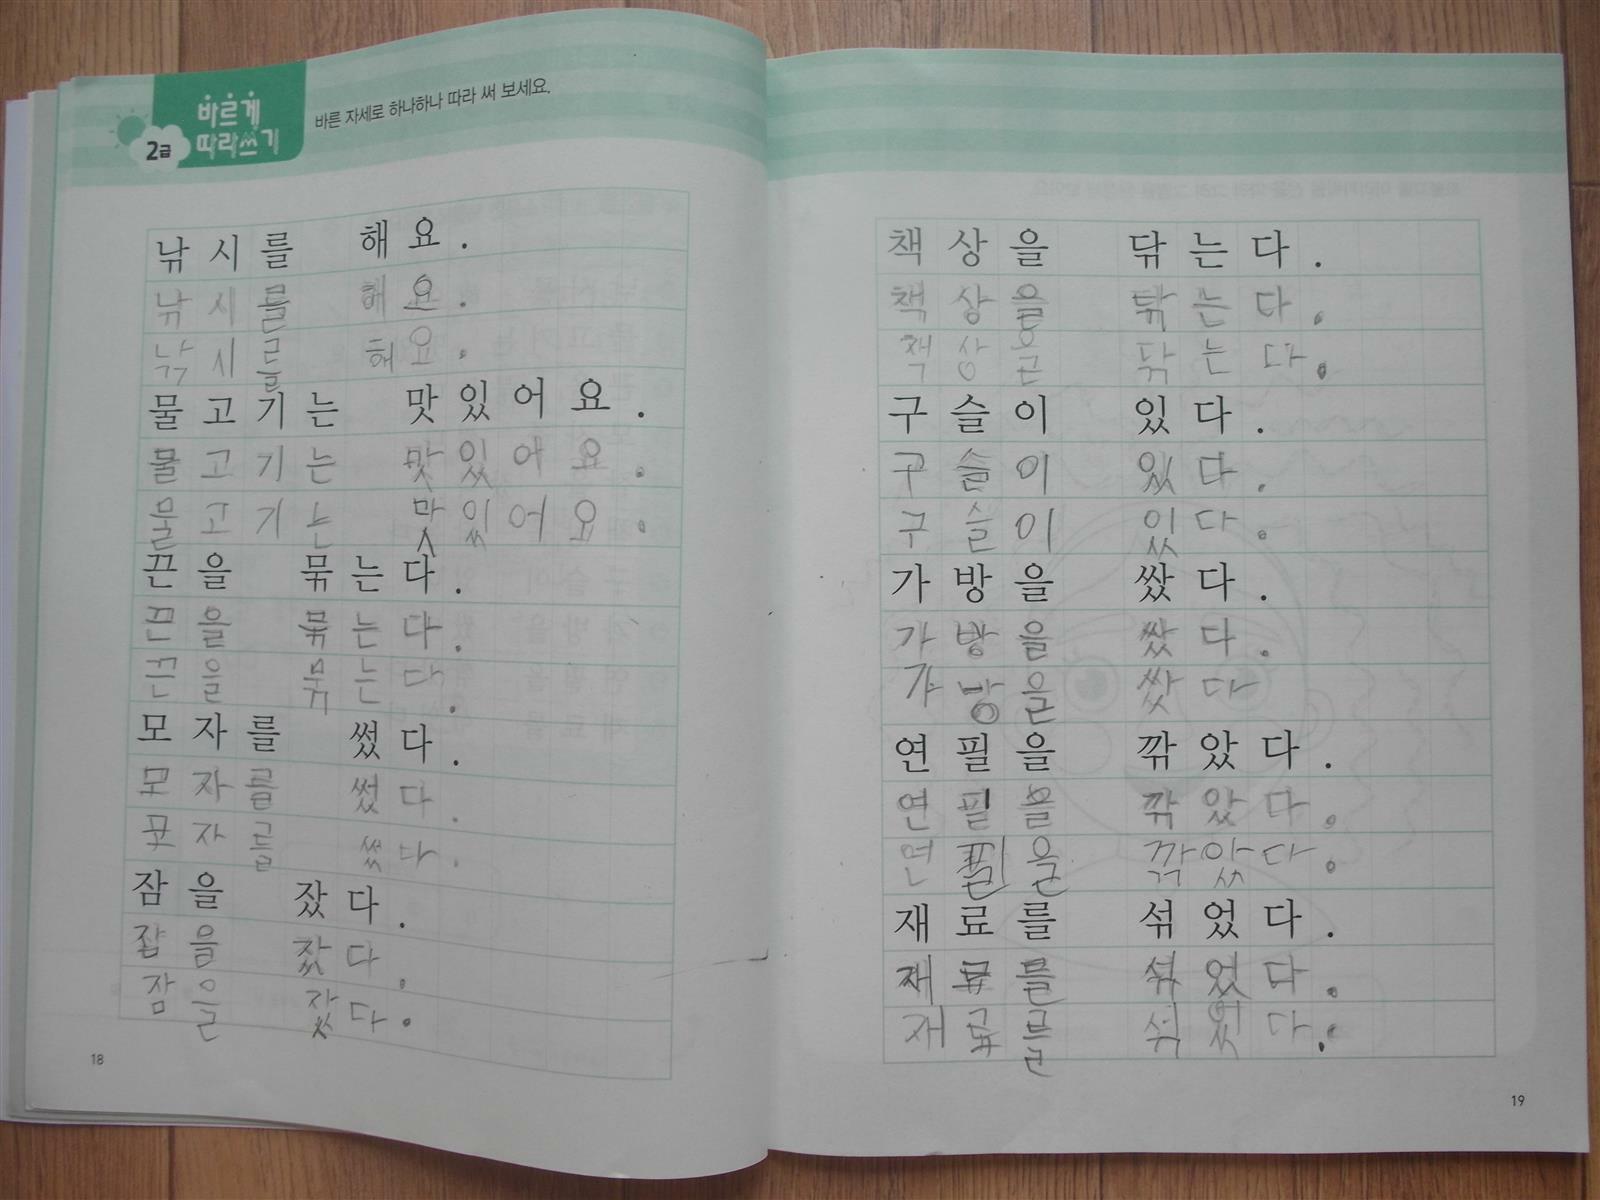 바르게
따라쓰기
2급
바른 자세로 하나하나 따라 써 보세요.
낚시를 해요.
낚시를 해요.
낚시를 해요.
물고기는 맛있어요.
물고기는 맛있어요.
물고기는 맛있어요.
끈을 묶는다.
끈을 묶는다.
끈을 묶는다.
모자를 썼다.
모자를 썼다.
모자를 썼다.
잠을 잤다.
잠을 잤다.
잠을 잤다.
18
책상을 닦는다.
책상을 닦는다.
책상을 닦는다.
구슬이 있다.
구슬이 있다.
구슬이 있다.
가방을 쌌다.
가방을 쌌다.
가방을 쌌다
연필을 깎았다.
연필을 깎았다.
연필을 깎았다.
재료를 섞었다.
재료를 섞었다.
재료를 섞었다.
19